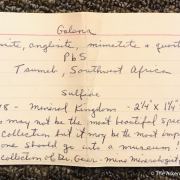 Galena
anglesite, mimetite & quartz
PbS
Tsumeb, Southwest Africa
Sulfide
78 - Mineral Kingdom - 2¼ x 1¾
may not be the most beautiful spec
collection but it may be the most imp
one should go into a museum!
collection of Dr. Geier - mine mineralogist